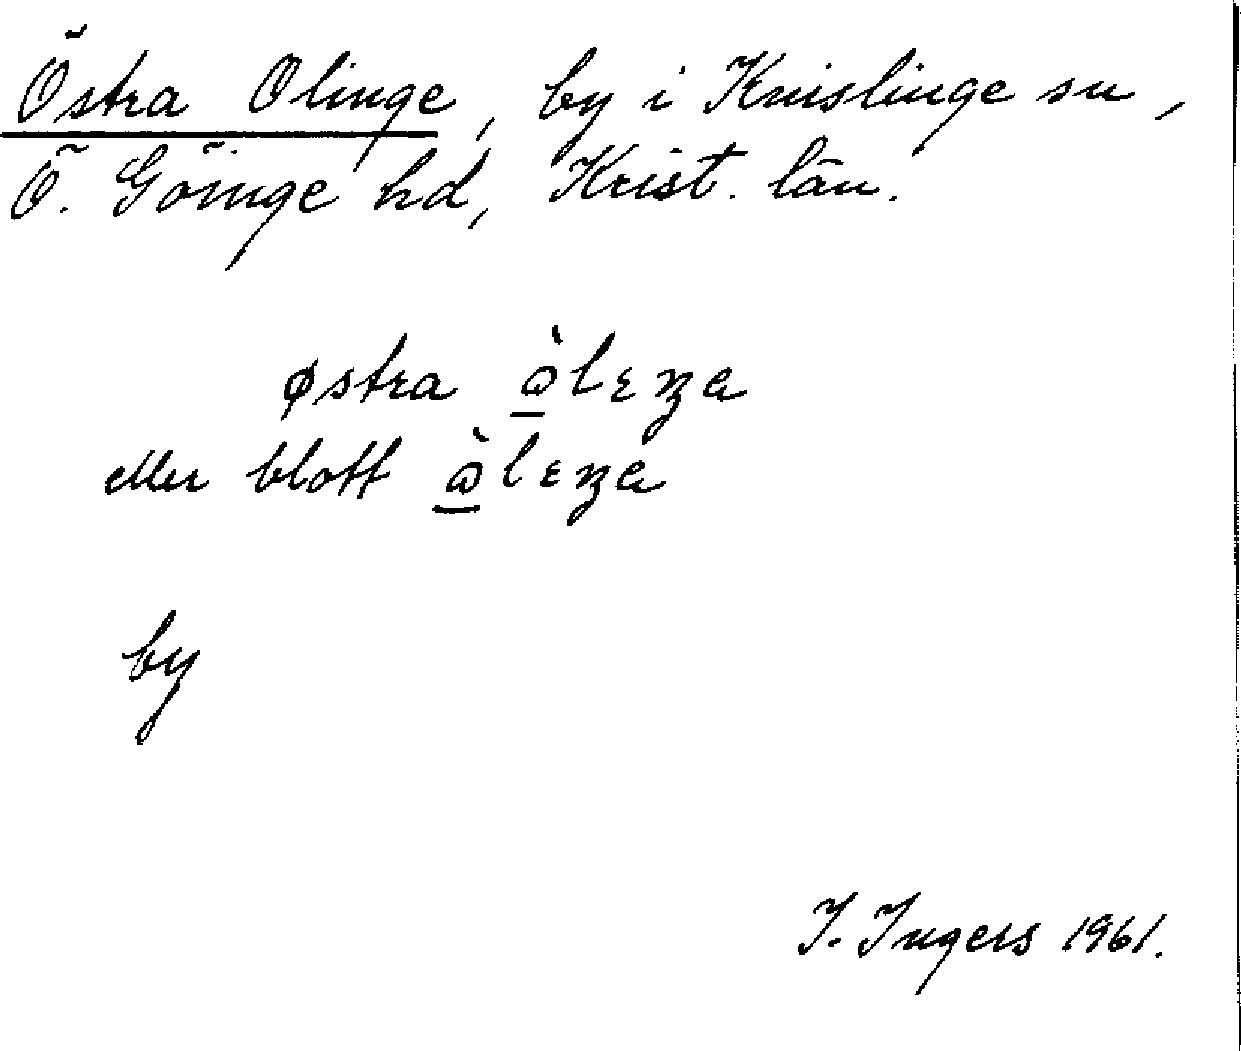 Östra Olinge, by i Knislinge sn,
Ö. Göinge hd, Krist. län.
østra
eller blott
by
I. Ingers 1961.